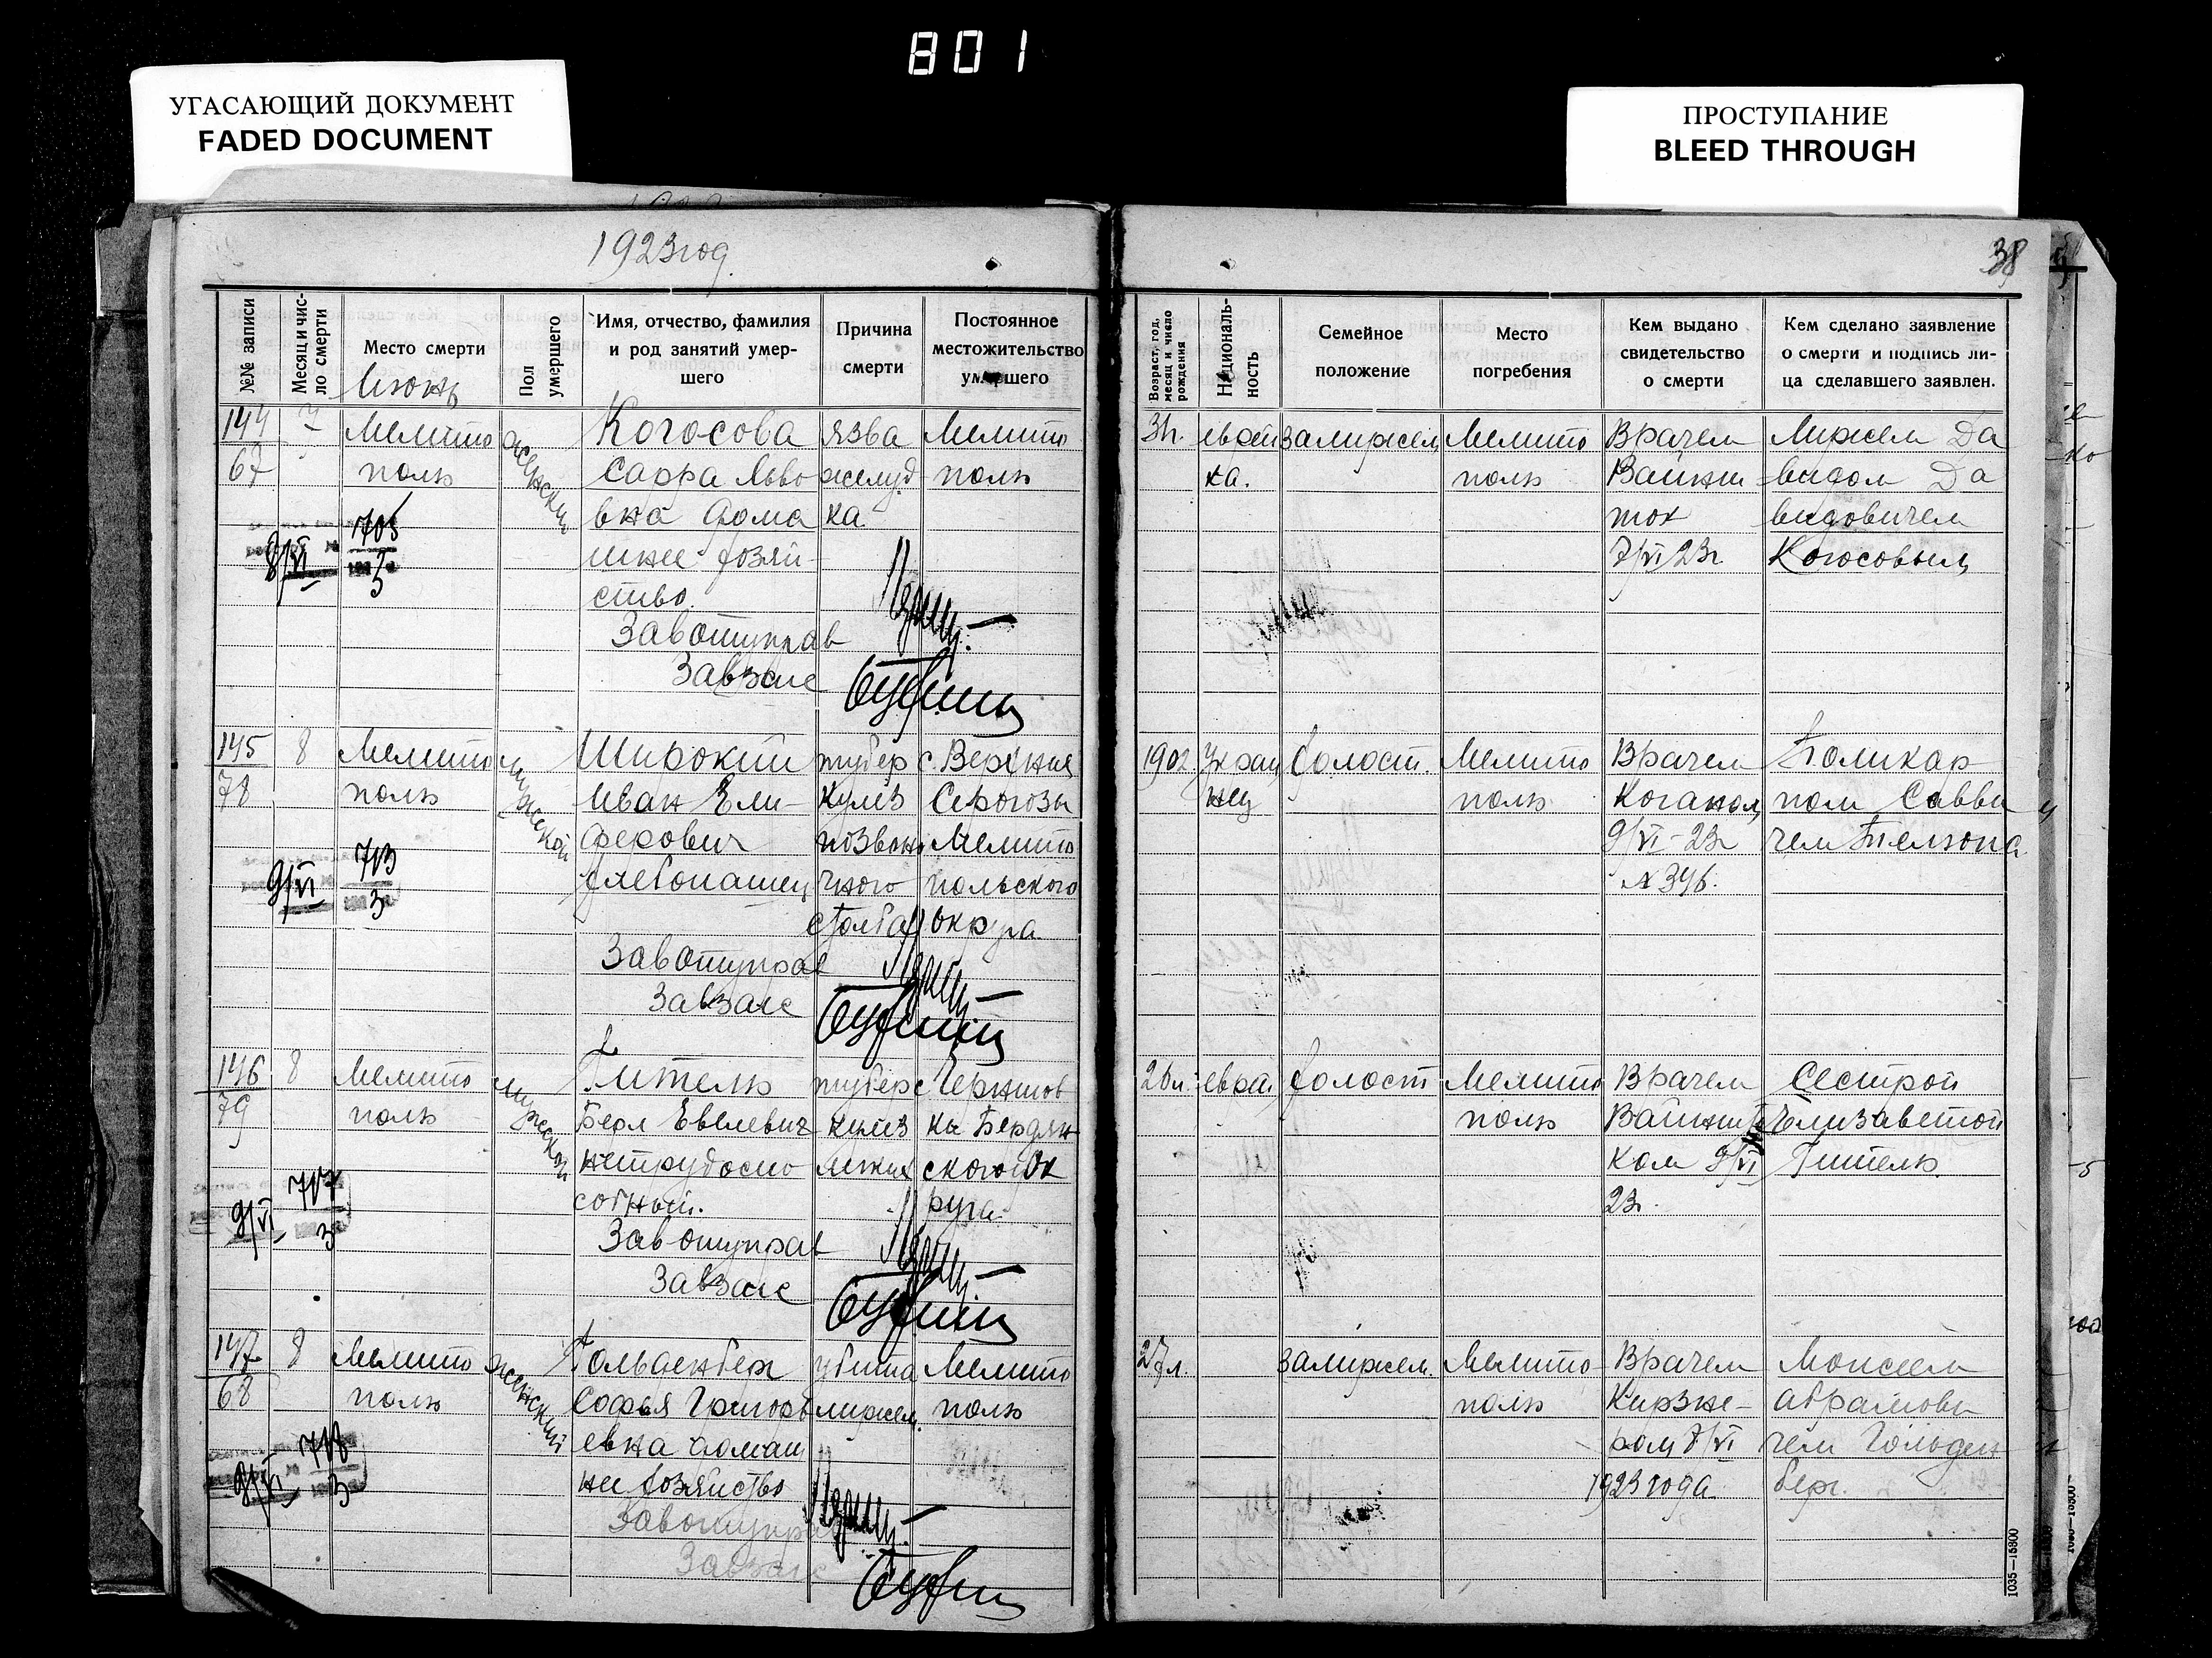 801
УГАСАЮЩИЙ ДОКУМЕНТ
FADED DOCUMENT
ПРОСТУПАНИЕ
BLEED THROUGH
1923 год.
38
№№ записи
Месяц и чис-
ло смерти
Место смерти
Июнь
Пол
умершего
Имя, отчество, фамилия
и род занятий умер-
шего
Причина
смерти
Постоянное
местожительство
умершего
Возраст, год,
месяц и число
рождения
Националь-
ность
Семейное
положение
Место
погребения
Кем выдано
свидетельство
о смерти
Кем сделано заявление
о смерти и подпись ли-
ца сделавшего заявлен.
144
67
Мелито
поль
женский
Когосова
Сарра Льво
вна Дома
шнее хозяй-
ство.
язва
желуд
ка
Мелито
поль
еврей
ка.
замужем
Мелито
поль
Врачем
Вайнш
ток
7/VI 23г.
Мужем Да
видом Да
видовичем
Когосовым
8/VI
705
3
Завотуправ
Завзагс
145
78
8
Мелито
поль
мужской
Широкий
Иван Ели-
ферович
хлебопашец
тубер
кулез
позвоно
чного
столба
с. Верхния
Серогозы
Мелито
польского
округа
1902.
Украи
нец
холост.
Мелито
поль
Врачем
Коганом
9/VI-23г
№ 396.
Поликар
пом Савви
чем
9/VI
713
3
Завотуправ
Завзагс
146
79
8
Мелито
поль
мужской
Гитель
Берл Евелевич
нетрудоспо
собный.
тубер
кулез
легких
с Чернигов
ка Бердян
ского Ок
руга
20л.
еврей
холост
Мелито
поль
Врачем
Вайншто
ком 9/VI
23г.
Сестрой
Елизаветой
Гитель
9/VI
717
3
Завотуправ
Завзагс
147
68
8
Мелито
поль
женский
Гольденберг
Софья Григорь
евна домаш
нее хозяйство
убита
мужем
Мелито
поль
27л.
замужем.
Мелито-
поль
Врачем
Кирзне-
ром 8/VI
1923 года
Моисеем
Абрамови
чем Гольден
берг.
9/VI
718
3
Завотуправ
Завзагс
1035—15800